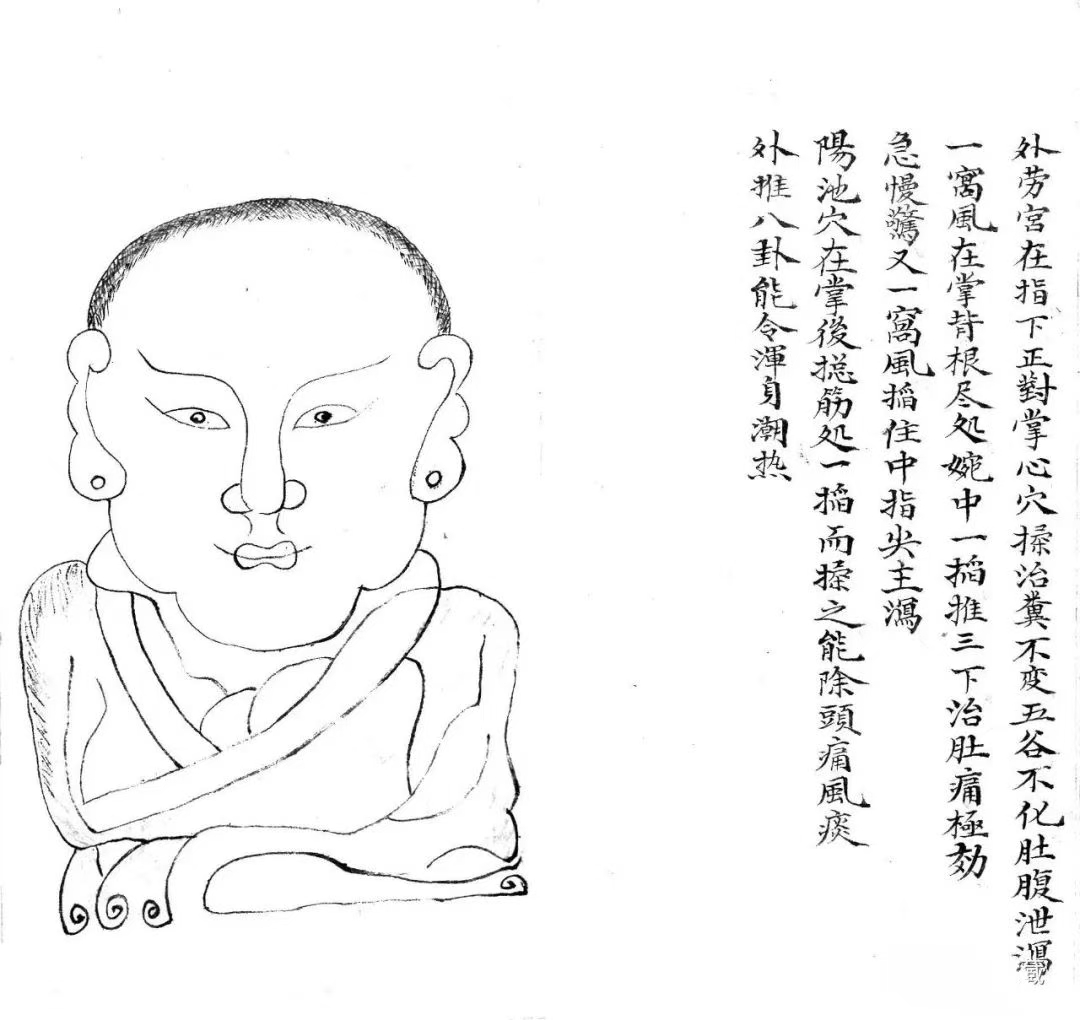 外劳宮在指下正對掌心穴搡治糞不变五谷不化肚腹泄瀉
一窩風在掌背根尽处婉中一掐推三下治肚痛極効
急慢驚又一窩風掐住中指尖主瀉
陽池穴在掌後揔筋处一掐而搡之能除頭痛風痰
外推八卦能令渾身潮热